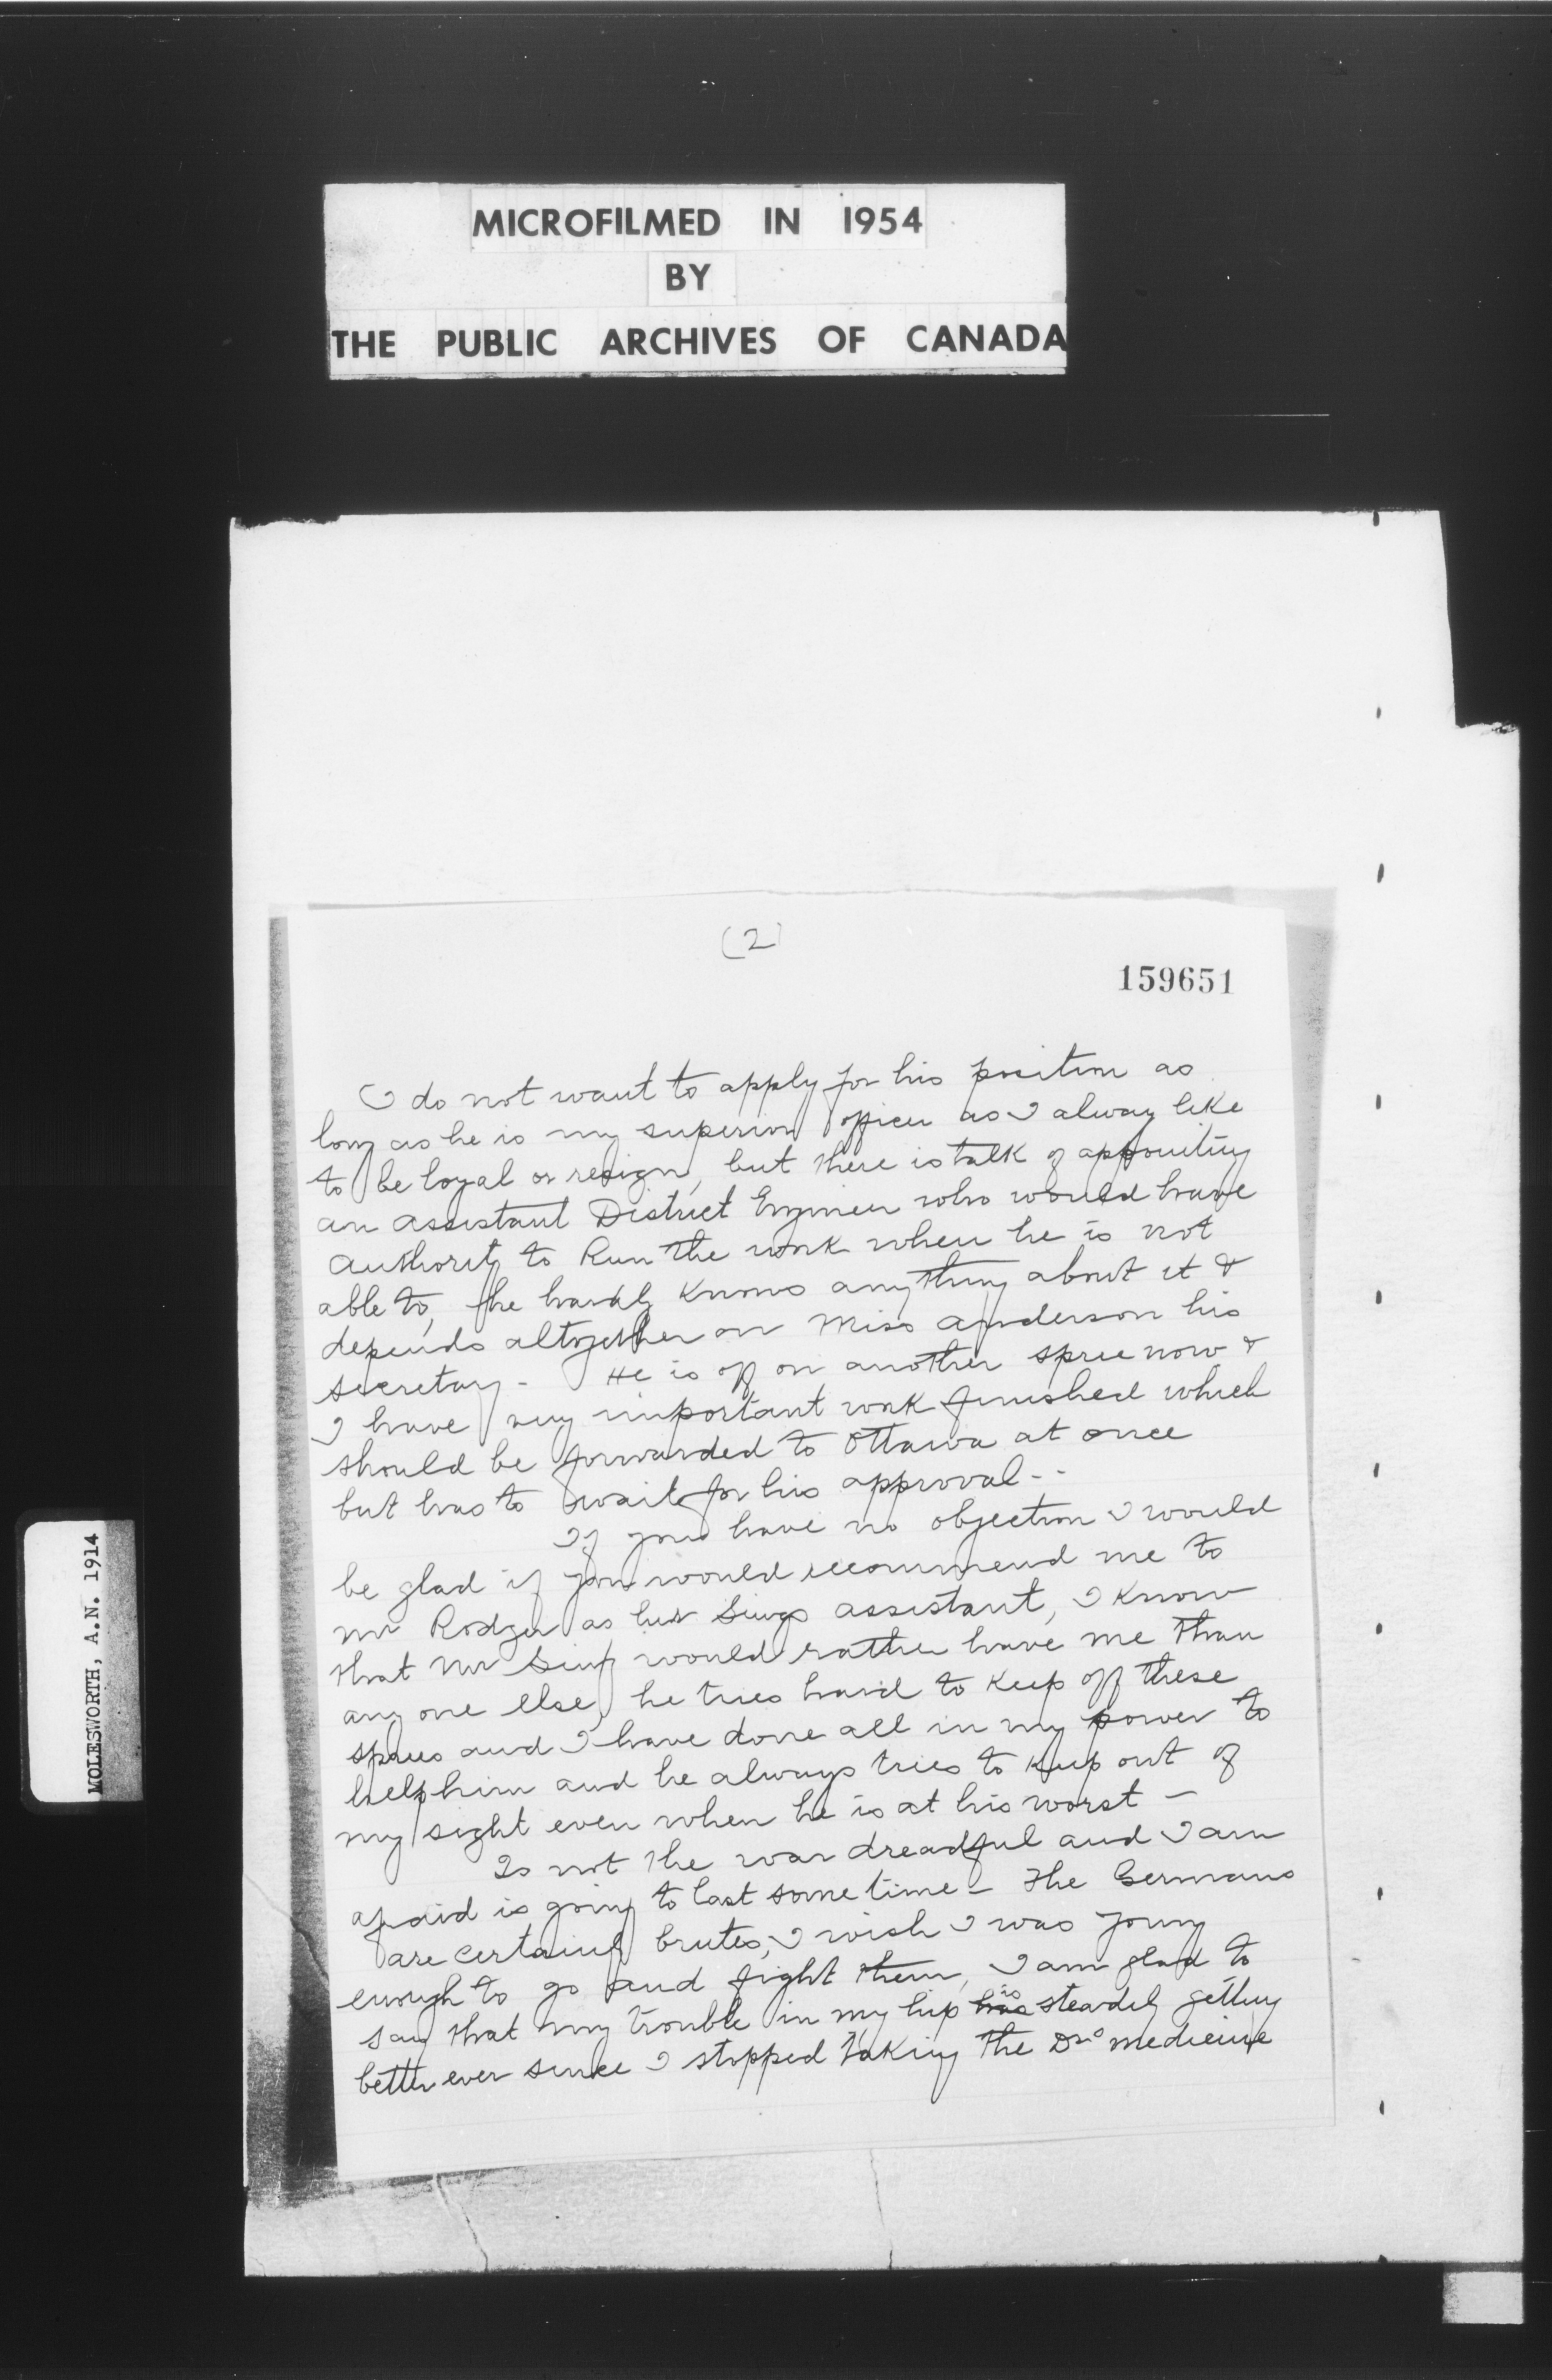 MICROFILMED IN 1954
BY
THE PUBLIC ARCHIVES OF CANADA
MOLESWORTH, A.N. 1914
(2)
159651
I do not want to apply for his position as
long as he is my superior officer as I alway like
to be loyal or resign, but there is talk of appointing
an assistant District Engineer who would have
authority to Run the work when he is not
able to, he hardly knows anything about it &
depends altogether on Miss Anderson his
secretary - He is off on another spree now &
I have very important work finished which
should be forwarded to Ottawa at once
but has to wait for his approval - -
If you have no objection I would
be glad if you would recommend me to
Mr Rodger as Sings assistant, I know
that Mr Sing would rather have me than
any one else, he tries hard to keep off these
sprees and I have done all in my power to
help him and he always tries to keep out of
my sight even when he is at his worst -
Is not the war dreadful and I am
afraid is going to last some time - The Germans
are certainly brutes, I wish I was young
enough to go and fight them, I am glad to
say that my trouble in my hip has is steadily getting
better ever since I stopped taking the Drs medicine